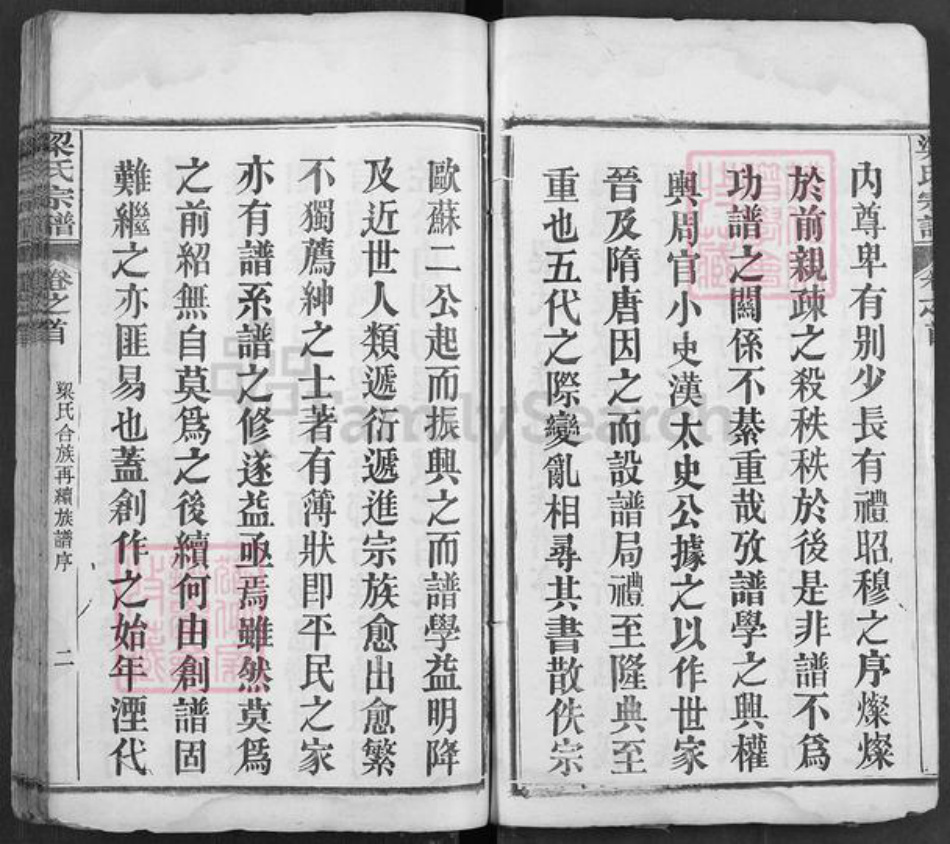 梁氏宗譜
內尊卑有别少長有禮昭穆之序燦燦
於前親疎之殺秩秩於後是非譜不爲
功譜之關係不綦重哉攷譜學之興權
輿周官小史漢太史公據之以作世家
晉及隋唐因之而設譜局禮至隆典至
重也五代之際變亂相尋其書散佚宗
歐蘇二公起而振興之而譜學益明降
及近世人類遞衍遞進宗族愈出愈繁
不獨薦紳之士著有簿狀即平民之家
亦有譜系譜之修遂益亟焉雖然莫爲
之前紹無自莫爲之後續何由創譜固
難繼之亦匪易也蓋創作之始年湮代
梁氏宗譜 卷之首 梁氏合族再續族譜序 二
FamilySearch